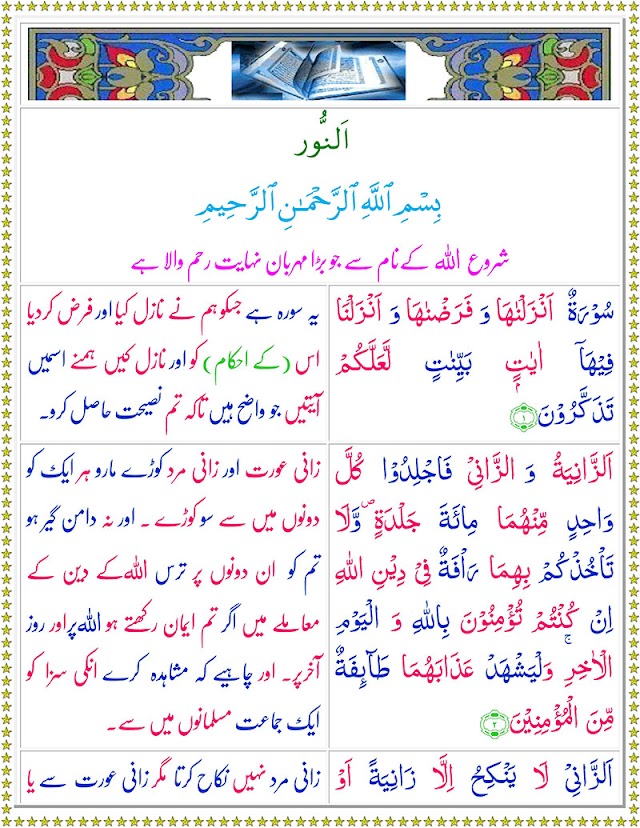 اَلنُّور
بِسْمِ ٱللَّهِ ٱلرَّحْمَـٰنِ ٱلرَّحِيمِ
شروع اللہ کے نام سے جو بڑا مہربان نہایت رحم والا ہے
سُوْرَةٌ اَنْزَلْنٰهَا وَ فَرَضْنٰهَا وَ اَنْزَلْنَا
فِيْهَاۤ اٰيٰتٍۭ بَيِّنٰتٍ لَّعَلَّكُمْ
تَذَكَّرُوْنَ ﴿۱﴾
یہ سورہ ہے جسکو ہم نے نازل کیا اور فرض کر دیا
اس (کے احکام) کو اور نازل کیں ہمنے اسمیں
آیتیں جو واضح ہیں تاکہ تم نصیحت حاصل کرو۔
اَلزَّانِيَةُ وَ الزَّانِيْ فَاجْلِدُوْا كُلَّ
وَاحِدٍ مِّنْهُمَا مِائَةَ جَلْدَةٍ ۪ وَّلَا
تَاْخُذْكُمْ بِهِمَا رَاْفَةٌ فِيْ دِيْنِ اللّٰهِ
اِنْ كُنْتُمْ تُؤْمِنُوْنَ بِاللّٰهِ وَ الْيَوْمِ
الْاٰخِرِ ۚ وَلْيَشْهَدْ عَذَابَهُمَا طَآئِفَةٌ
مِّنَ الْمُؤْمِنِيْنَ ﴿۲﴾
زانی عورت اور زانی مرد کوڑے مارو ہر ایک کو
دونوں میں سے سو کوڑے ۔ اور نہ دامن گیر ہو
تم کو ان دونوں پر ترس اللہ کے دین کے
معاملے میں اگر تم ایمان رکھتے ہو اللہ پر اور روز
آخر پر۔ اور چاہیے کہ مشاہدہ کرے انکی سزا کو
ایک جماعت مسلمانوں میں سے۔
اَلزَّانِيْ لَا يَنْكِحُ اِلَّا زَانِيَةً اَوْ
زانی مرد نہیں نکاح کرتا مگر زانی عورت سے یا